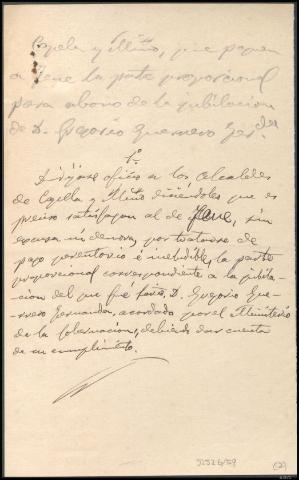 Capela y Miño, que paguen
a Fene la parte proporcional
para abono de la jubilacion
de D. Gregorio Guerrero
1º
Diríjase oficio a los Alcaldes
de Capella y Miño diciéndoles que es
preciso satisfagan al de Fene, sin
excusa ni demora, por tratarse de
pago perentorio é ineludible, la parte
proporcional correspondiente á la jubila-
cion del que fué D. Gregorio Gue-
rrero Fernandez, acordado por el Ministerio
de la Gobernacion, debiendo dar cuenta
de su cumplimiento.
(2)